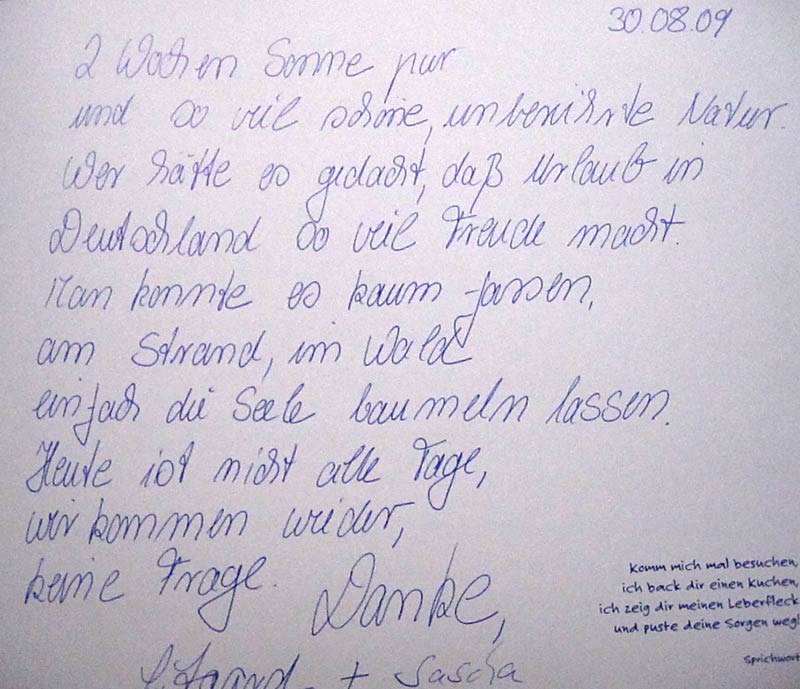 30.08.09
2 Wochen Sonne pur
und so veil schöne, unberührte Natur.
Wer hätte es gedacht, daß Urlaub in
Deutschland so veil Freude macht.
Man konnte es kaum fassen,
am Strand, im Wald
einfach die Seele baumeln lassen.
Heute ist nicht alle Tage,
wir kommen wieder,
keine Frage.
Danke,
+ Sascha
Komm mich mal besuchen,
ich back dir einen Kuchen,
ich zeig dir meinen Leberfleck
und puste deine Sorgen weg!
Sprichwort